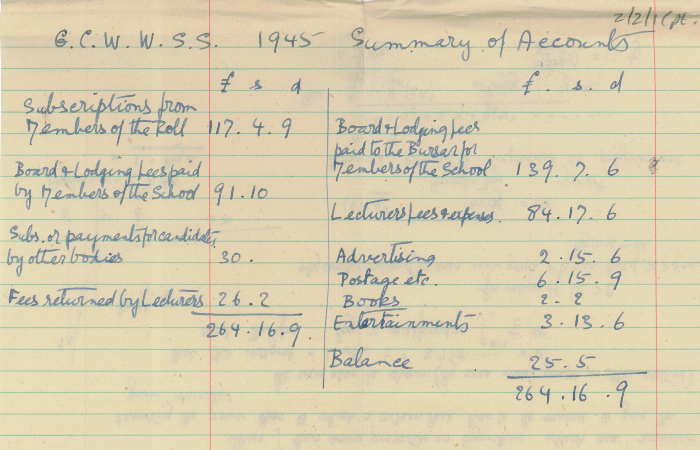 G.C.W.W.S.S. 1945 Summary of Accounts
£ s d
Subscriptions from
Members of the Roll 117. 4. 9
Board & Lodging fees paid
by Members of the School 91.10
Subs. or payments for candidates
by other bodies 30.
Fees returned by Lecturers 26.2
264.16.9.
£. s. d
Board & Lodging fees
paid to the Bursar for
Members of the School 139. 7. 6
Lecturers fees & expenses. 84.17. 6
Advertising 2.15. 6
Postage etc. 6.15. 9
Books 2-2
Entertainments 3.13. 6
Balance 25.5
264.16.9